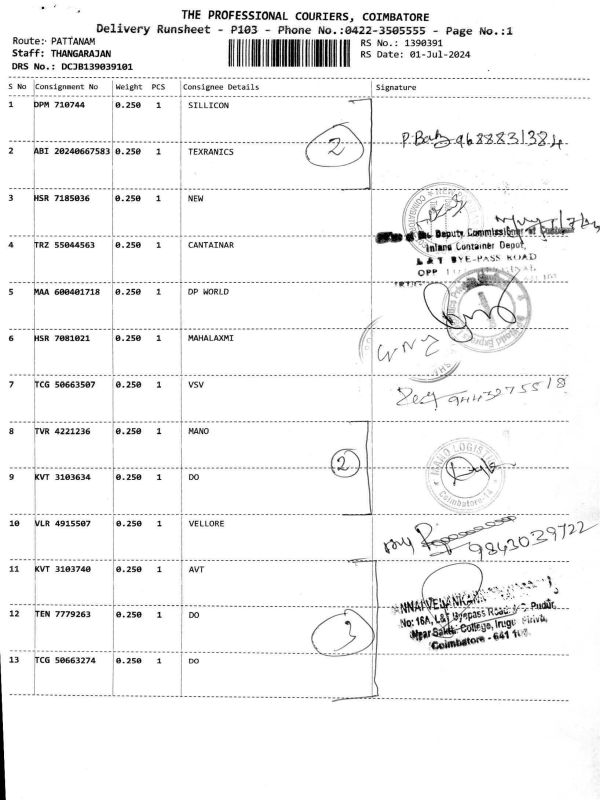 THE PROFESSIONAL COURIERS, COIMBATORE
Delivery Runsheet - P103 - Phone No.:0422-3505555 - Page No.:1
Route: PATTANAM RS No.: 1390391
Staff: THANGARAJAN RS Date: 01-Jul-2024
DRS No.: DCJB139039101
S No Consignment No Weight PCS Consignee Details Signature
1 DPM 710744 0.250 1 SILLICON
2
9688831384
2 ABI 20240667583 0.250 1 TEXRANICS
3 HSR 7185036 0.250 1 NEW
of the Deputy Commissioner of Customs
4 TRZ 55044563 0.250 1 CANTAINAR
Inland Container Depot,
L & T BYE-PASS ROAD
OPP
5 MAA 600401718 0.250 1 DP WORLD
6 HSR 7081021 0.250 1 MAHALAXMI
7 TCG 50663507 0.250 1 VSV
9443275518
8 TVR 4221236 0.250 1 MANO
2
MANO LOGISTICS
Coimbatore-14
9 KVT 3103634 0.250 1 DO
10 VLR 4915507 0.250 1 VELLORE
9843039722
11 KVT 3103740 0.250 1 AVT
12 TEN 7779263 0.250 1 DO
3
No: 16A, L&T Byepass Road, Pudur,
Near Sakthi College, Irugur Pirivu,
Coimbatore - 641
13 TCG 50663274 0.250 1 DO